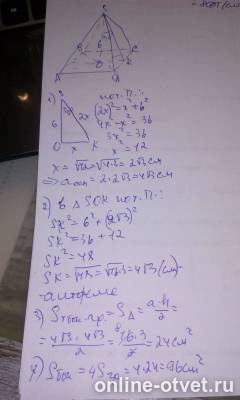 S
6
A
O
K
C
1) по т. П.:
S
30°
6
2x
O x K
(2x)² = x² + 6²
4x² - x² = 36
3x² = 36
x² = 12
x = √12 = √4·3 = 2√3 см
⇒ aосн = 2·2√3 = 4√3 см
2) в △SOK по т. П.:
SK² = 6² + (2√3)²
SK² = 36 + 12
SK² = 48
SK = √48 = √16·3 = 4√3 (см) -
- апофема
3) Sбок.гр. = S△ = a·h/2 =
= 4√3·4√3/2 = 16·3/2 = 24 см²
4) Sбок = 4Sгр = 4·24 = 96 см²
online-otvet.ru